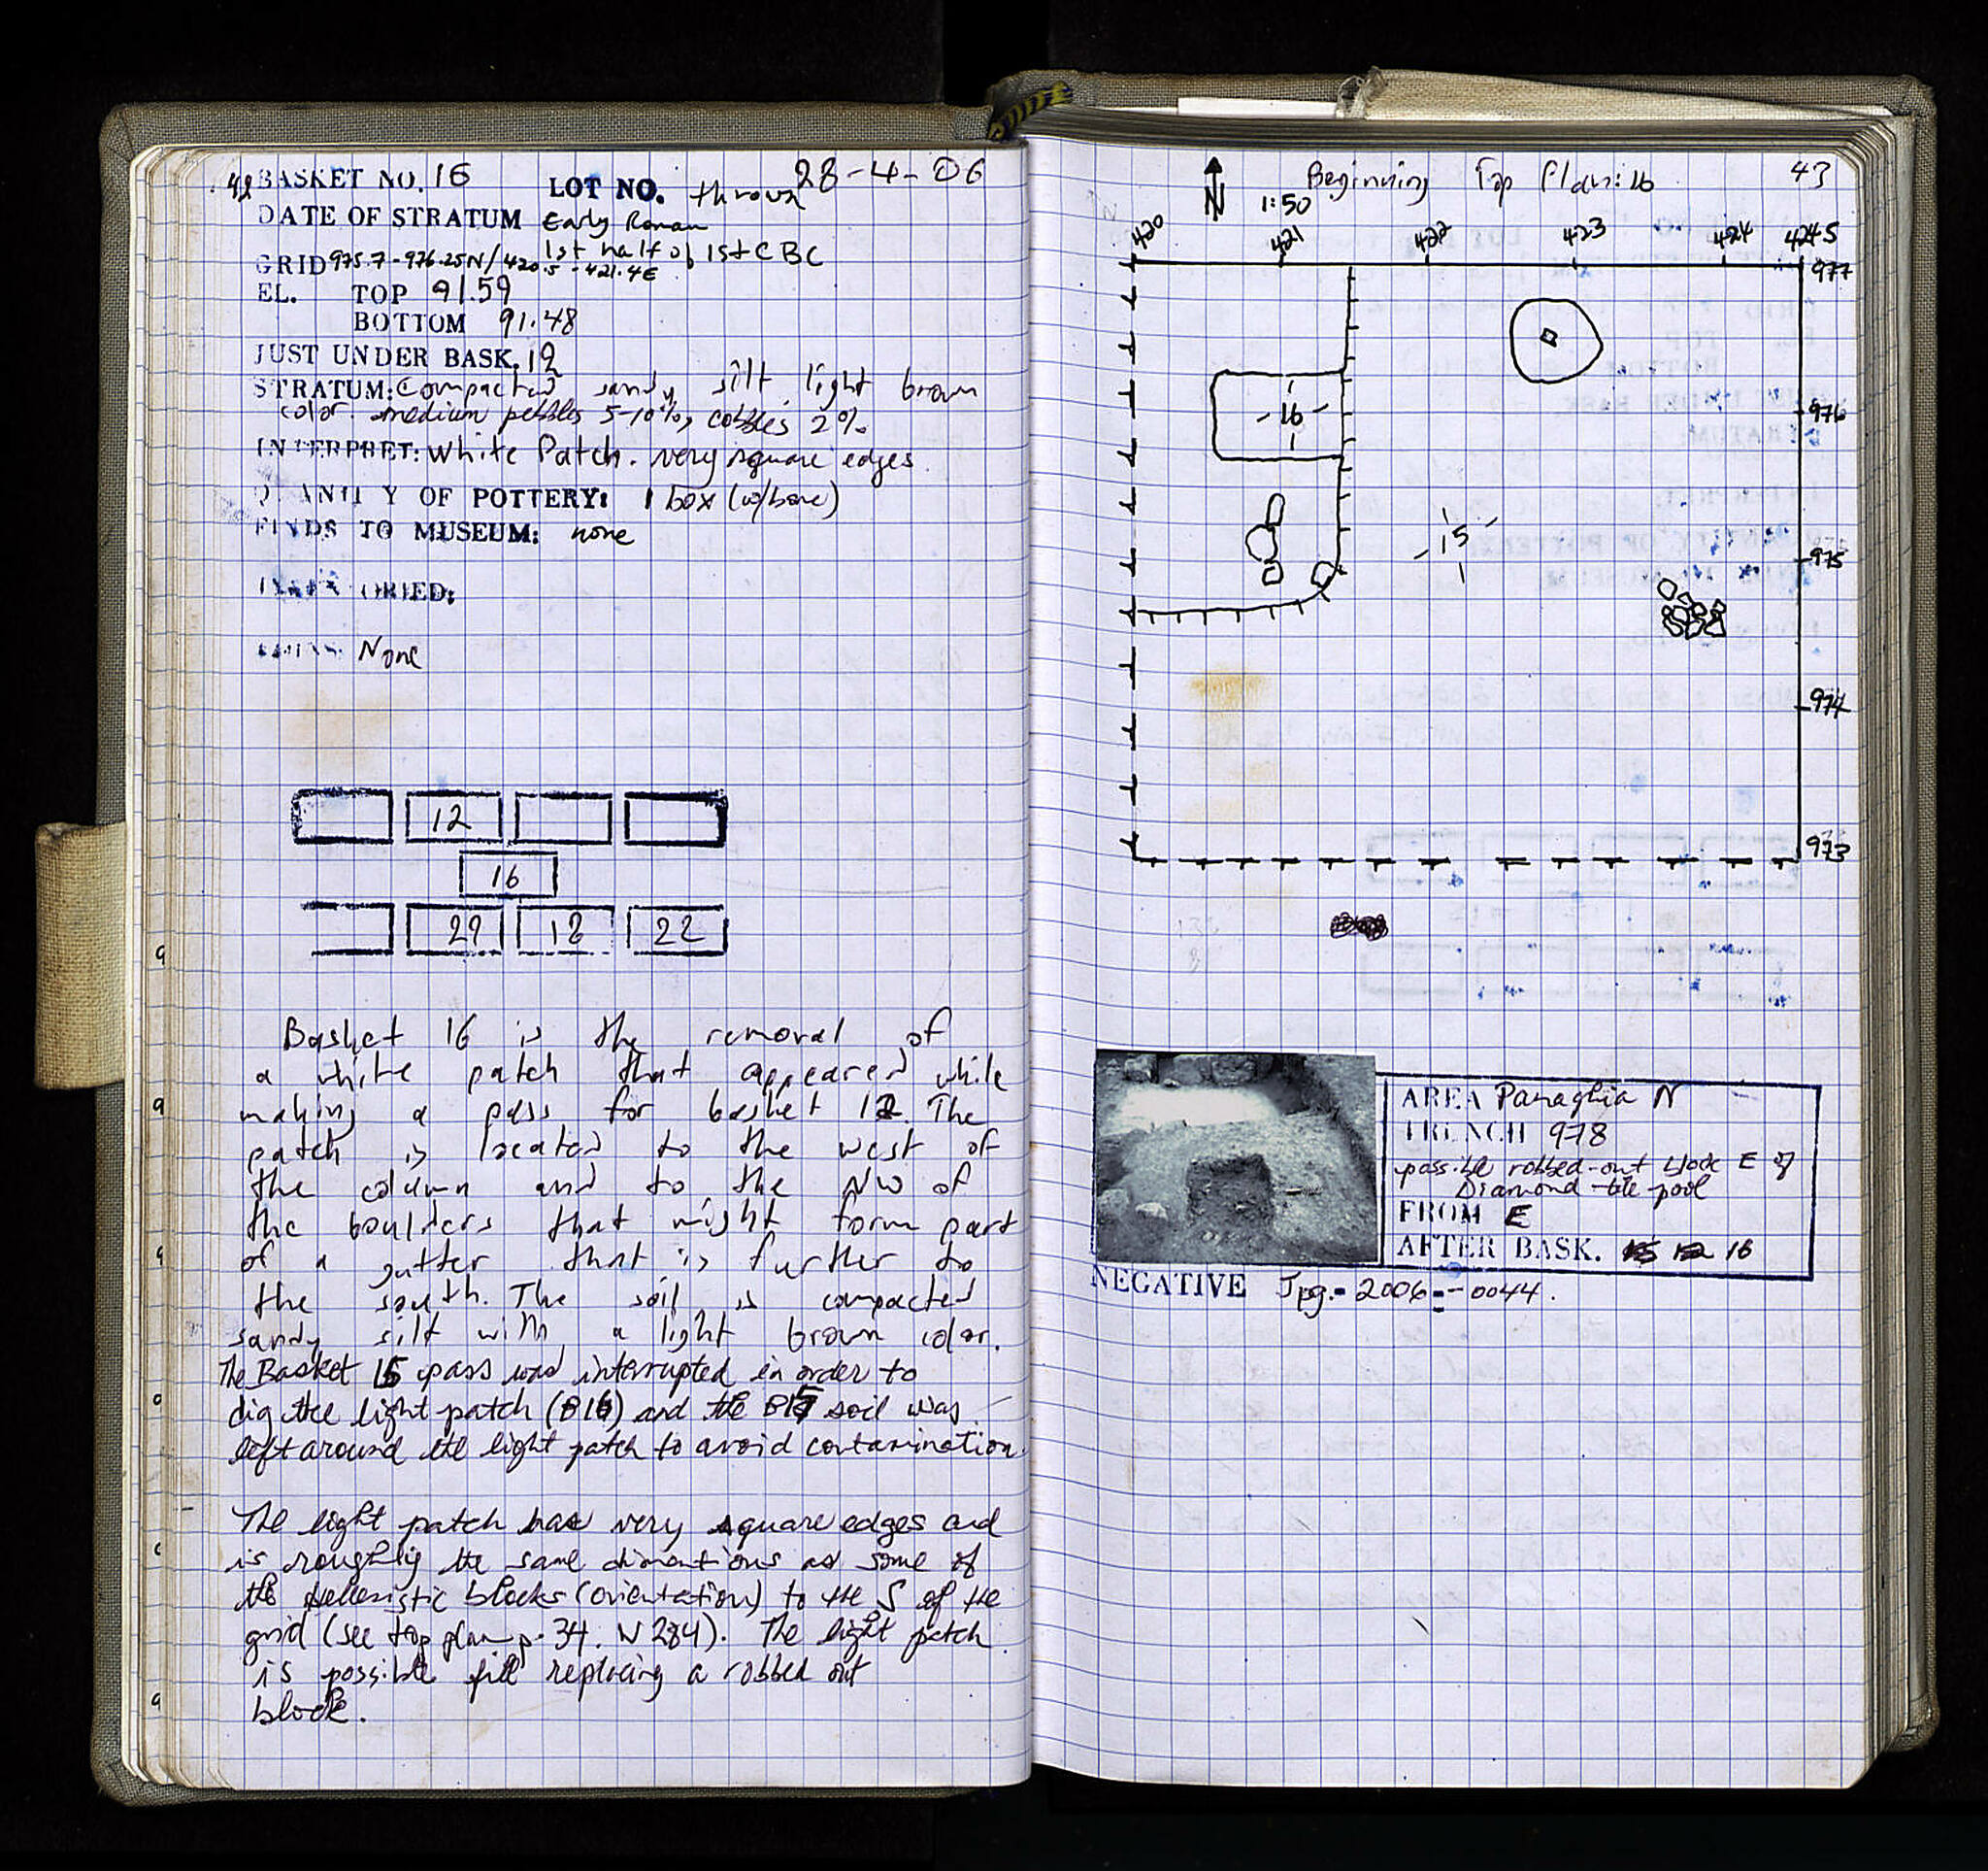 42 BASKET NO. 16 LOT NO. thrown 28-4-06
DATE OF STRATUM Early Roman
1st half of 1st C BC
GRID 975.7-976.25N/420.5-421.4E
EL. TOP 91.59
BOTTOM 91.48
JUST UNDER BASK. 12
STRATUM: Compacted sandy silt. light brown
color. medium pebbles 5-10%, cobbles 2%
INTERPRET: White Patch. very square edges.
QUANTITY OF POTTERY: 1 box (w/bone)
FINDS TO MUSEUM: none
INVENTORIED:
COINS: None
12
16
29 18 22
Basket 16 is the removal of
a white patch that appeared while
making a pass for basket 12. The
patch is located to the west of
the column and to the NW of
the boulders that might form part
of a gutter that is further to
the south. The soil is compacted
sandy silt with a light brown color.
The Basket 15 pass was interrupted in order to
dig the light patch (B16) and the B15 soil was
left around the light patch to avoid contamination.
The light patch has very square edges and
is roughly the same dimentions as some of
the Hellenistic blocks (orientation) to the S of the
grid (see top plan p. 34. N 284). The light patch
is possible fill replacing a robbed out
block.
N 1:50 Beginning Top Plan: 16 43
420 421 422 423 424 424.5
977
976
16
15
975
974
973
AREA Panaghia N
TRENCH 978
possible robbed-out block E of
Diamond-tile pool
FROM E
AFTER BASK. 16
NEGATIVE Jpg.-2006--0044.